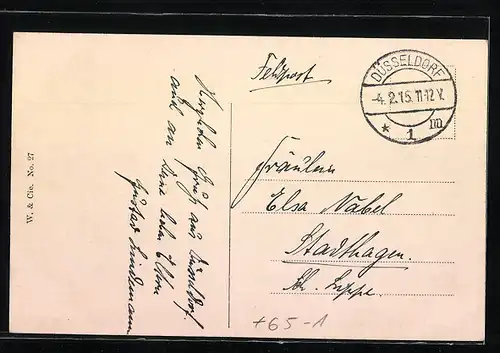 W. & Cie. No. 27
Herzlichen Gruß aus Düsseldorf
auch an Deine lieben Eltern
Gustav Lindemann
Feldpost
DÜSSELDORF
-4.2.15. 11-12 V.
* 1 m
Fräulein
Elsa Nabel
Stadthagen.
Sch. Lippe.
+65-1